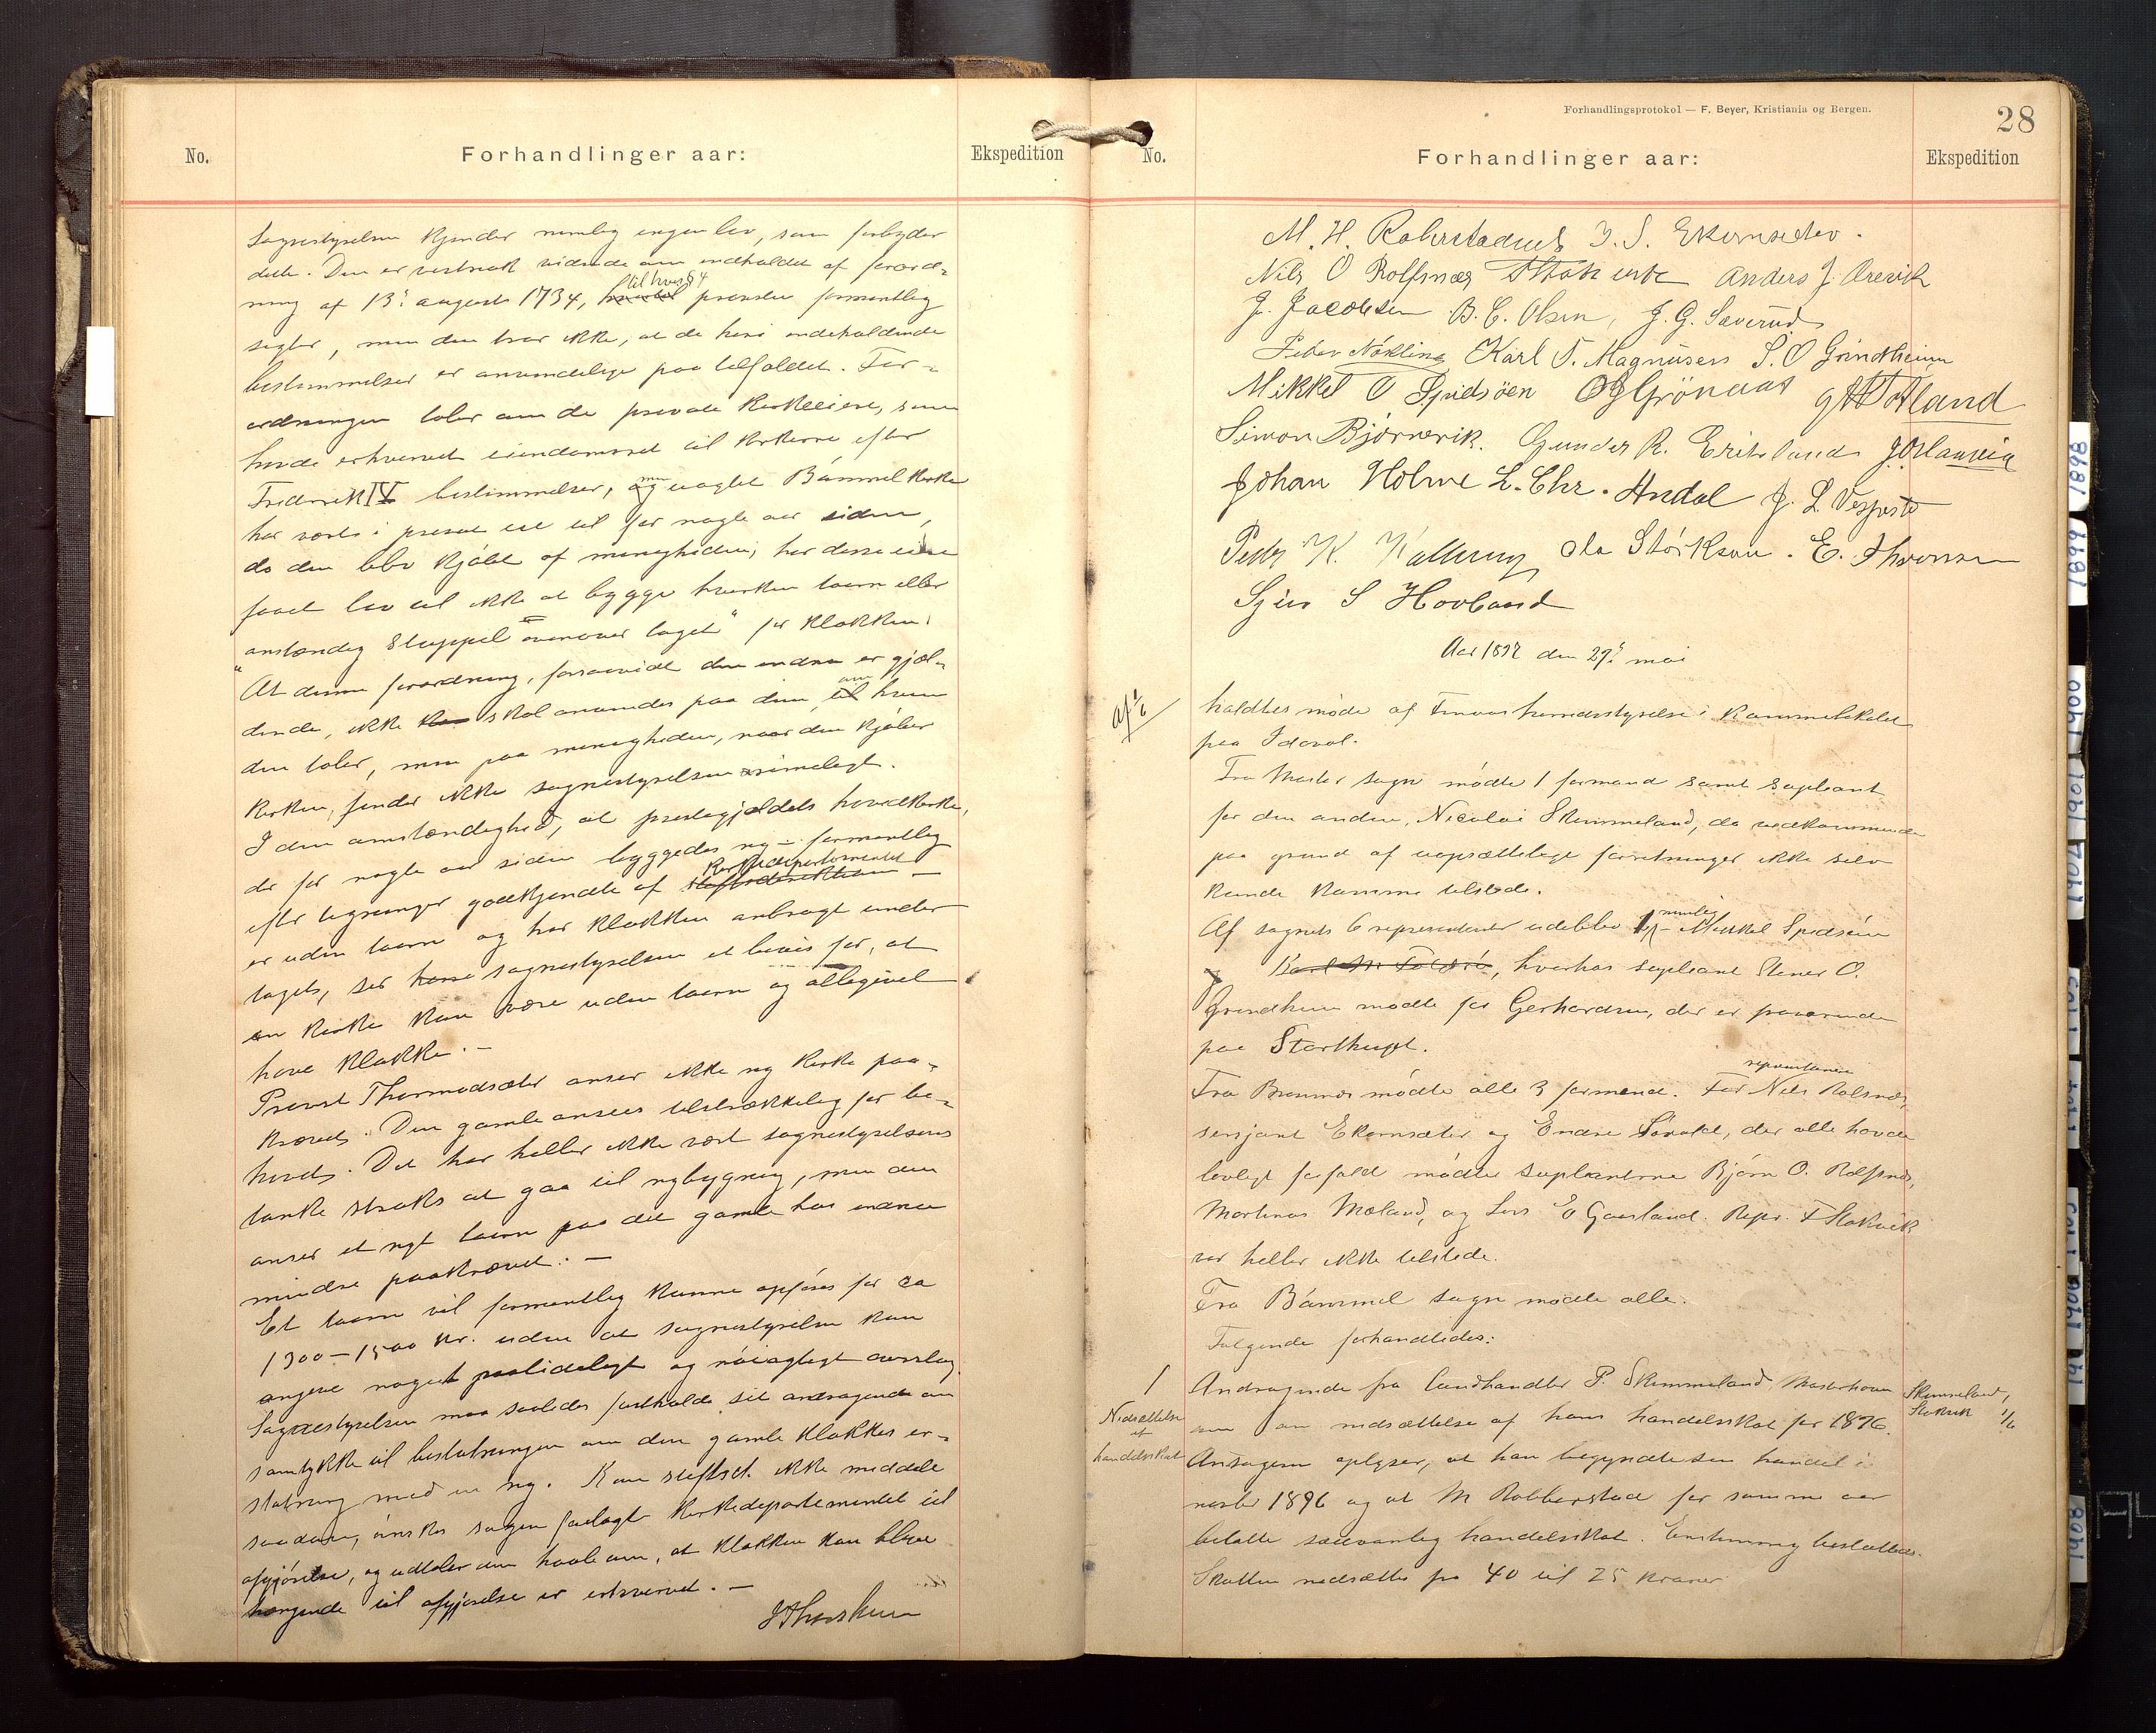 No.
Forhandlinger aar:
Ekspedition
Sognestyrelsen kjender nemlig ingen lov, som forbyder
dette. Den er vistnok vidende om indholdet af forord-
ning af 13de august 1734, til hvis § 4 provsten formentlig
sigter, men den tror ikke, at de heri indeholdende
bestemmelser er anvendelige paa tilfældet. For-
ordningen taler om de private kirkeeiere, som
havde erhvervet eiendomsret til kirkerne efter
Fredrik IV bestemmelser, men uagtet Bømmel kirke
har været i privat eie til for nogle aar siden,
da den blev kjøbt af menigheden, har disse eiere
faaet lov til ikke at bygge hverken taarn eller
"anstændig Stuppel ovenover taget" for klokken.
At denne forordning, forsaavidt den endnu er gjæl-
dende, ikke skal anvendes paa dem, om hvem
den taler, men paa menigheden, naar den kjøber
kirken, finder ikke sognestyrelsen rimeligt.
I den omstændighed, at prestegjældets hovedkirke,
der for nogle aar siden byggedes ny – formentlig
efter tegninger godkjendte af kirkedepartementet –
er uden taarn og har klokken anbragt under
taget, ser sognestyrelsen et bevis for, at
en kirke kan være uden taarn og alligevel
have klokke. –
Provst Thormodsæter anser ikke ny kirke paa-
krævet. Den gamle ansees tilstrækkelig for be-
hovet. Det har heller ikke vært sognestyrelsens
tanke straks at gaa til nybygning, men den
anser et nyt taarn paa det gamle hus endnu
mindre paakrævet. –
Et taarn vil formentlig kunne opføres for ca
1300 – 1500 kr. uden at sognestyrelsen kan
angive noget paalideligt og nøiagtigt overslag.
Sognestyrelsen maa saaledes fastholde sit andragende om
samtykke til beslutningen om den gamle klokkes er-
statning med en ny. Kan stiftsd. ikke meddele
saadant, ønskes sagen forelagt kirkedepartementet til
afgjørelse, og udtaler den haab om, at klokken kan blive
hængende til afgjørelse er erhvervet. –
Forhandlingsprotokol — F. Beyer, Kristiania og Bergen.
28
No.
Forhandlinger aar:
Ekspedition
M. H. Robberstad J. S. Ekornsæter.
Nils O Rolfsnæs Anders J. Ørevik
J. Jacobsen B. C. Olsen, J. G. Sæverud
Peter Nökling Karl T. Magnusen S. O Grindheim
Mikkel O Spidsöen O G Grönaas
Simon Bjørnevik. Gunder R. Eriksland
Johan Holme L. Chr. Andal J. L. Vespestad
Peder K. Ola Störkson. E. Thorsen
Sjur S Hovland
Aar 1897 den 29de mai
holdtes møde af Finnaas herredsstyrelse i kommunelokalet
paa Idavol.
Fra Moster sogn mødte 1 formand samt suppleant
for den anden, Nicolai Skimmeland, da vedkommende
paa grund af uopsættelige forretninger ikke selv
kunde komme tilstede.
Af sognets 6 representanter udeblev 1, nemlig Mikkel Spidsøen
og Karl M Foldrö, hvorhos supleant Stener O.
Grindheim mødte for Gerhardsen, der er fraværende
paa Storthinget.
Fra Bremnes mødte alle 3 formænd. For representanterne Nils Rolfsnes,
sersjant Ekornsæter og Endre, der alle havde
lovligt forfald mødte suplianterne Bjørn O. Rolfsnæs,
Martinus Mæland, og Lars E Gaasland. Repr. T Stokvik
var heller ikke tilstede.
Fra Bømmel sogn mødte alle.
Følgende forhandledes:
1
Nedsættelse
af
handelsskat
Andragende fra landhandler P. Skimmeland, Mosterhavn
om nedsættelse af hans handelsskat for 1896.
Ansøgeren oplyser, at han begyndte sin handel i
novbr 1896 og at M Robberstad for samme aar
betalte sædvanlig handelsskat. Enstemmig besluttedes:
Skatten nedsættes fra 40 til 25 kroner
Skimmeland,
Stokvik 1/6
1898
1899
1900
1901
1902
1903
1904
1905
1906
1908